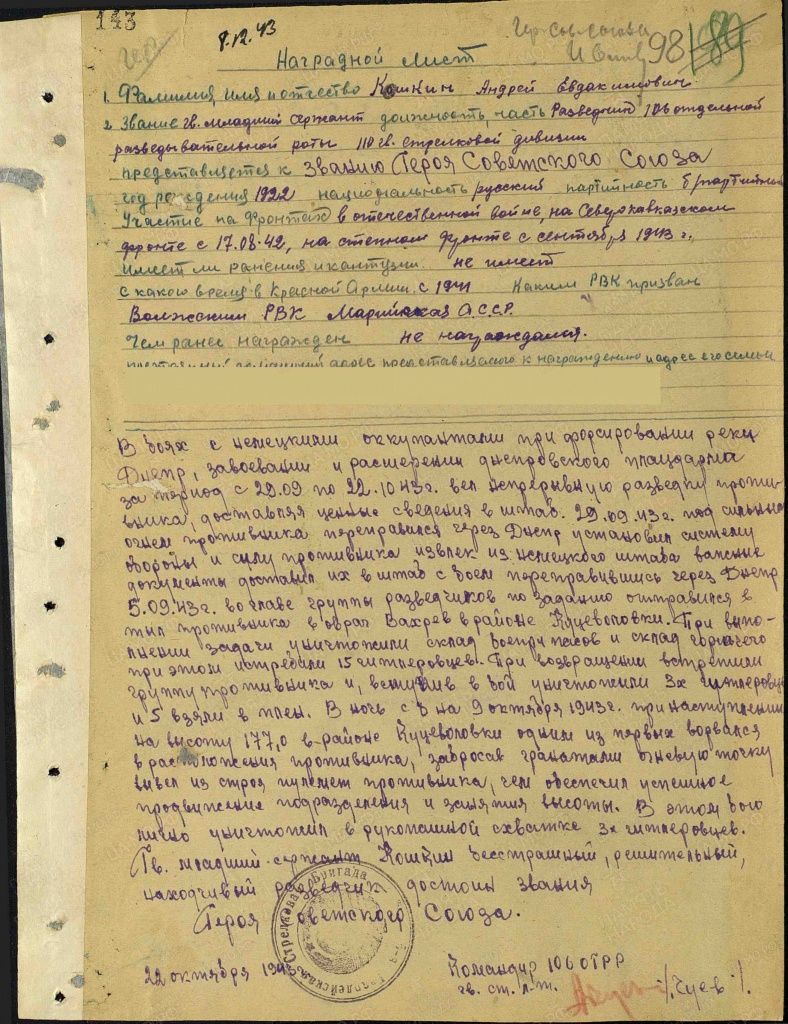 143
8.12.43
98
189
Наградной лист
1. Фамилия, имя и отчество Кошкин Андрей Евдакимович
2. Звание гв. младший сержант должность, часть Разведчик 106 отдельной
разведывательной роты 110 гв. стрелковой дивизии
представляется к званию Героя Советского Союза
год рождения 1922 национальность русский партийность б/партийный
Участие на фронтах в отечественной войне, на Северокавказском
фронте с 17.08.42, на степном фронте с сентября 1943 г.,
имеет ли ранения и кантузии не имеет
С какого время в Красной Армии с 1941 Каким РВК призван
Волжским РВК Марийская А.С.С.Р.
Чем ранее награжден не награждался.
домашний адрес представляемого к награждению и адрес его семьи
В боях с немецкими оккупантами при форсировании реки
Днепр, завоевании и расшерении днепровского плацдарма
за период с 29.09 по 22.10.43г. вел непрерывную разведку проти-
вника, доставляя ценные сведения в штаб. 29.09.43г. под сильным
огнем противника переправился через Днепр установил систему
обороны и силу противника извлек из немецкого штаба важные
документы доставил их в штаб с боем переправившись через Днепр
5.09.43г. во главе группы разведчиков по заданию отправился в
тыл противника в овраг в районе Куцеволовки. При выпо-
лнении задачи уничтожили склад боеприпасов и склад горючего
при этом истребили 15 гитлеровцев. При возвращении встретили
группу противника и, вступив в бой уничтожили 3х гитлеровце
и 5 взяли в плен. В ночь с 8 на 9 октября 1943г. при наступлении
на высоту 177,0 в районе Куцеволовки одним из первых ворвался
в расположения противника, забросав гранатами огневую точку
вывел из строя пулемет противника, чем обеспечил успешное
продвижение подразделения и занятия высоты. В этом бою
лично уничтожил в рукопашной схватке 3х гитлеровцев.
Гв. младший сержант Кошкин бесстрашный, решительный,
находчивый разведчик достоин звания
Героя Советского Союза.
Стрелковая Бригада
22 октября 1943
Командир 106 ОГРР
гв. ст. л-т. /Чуев/.